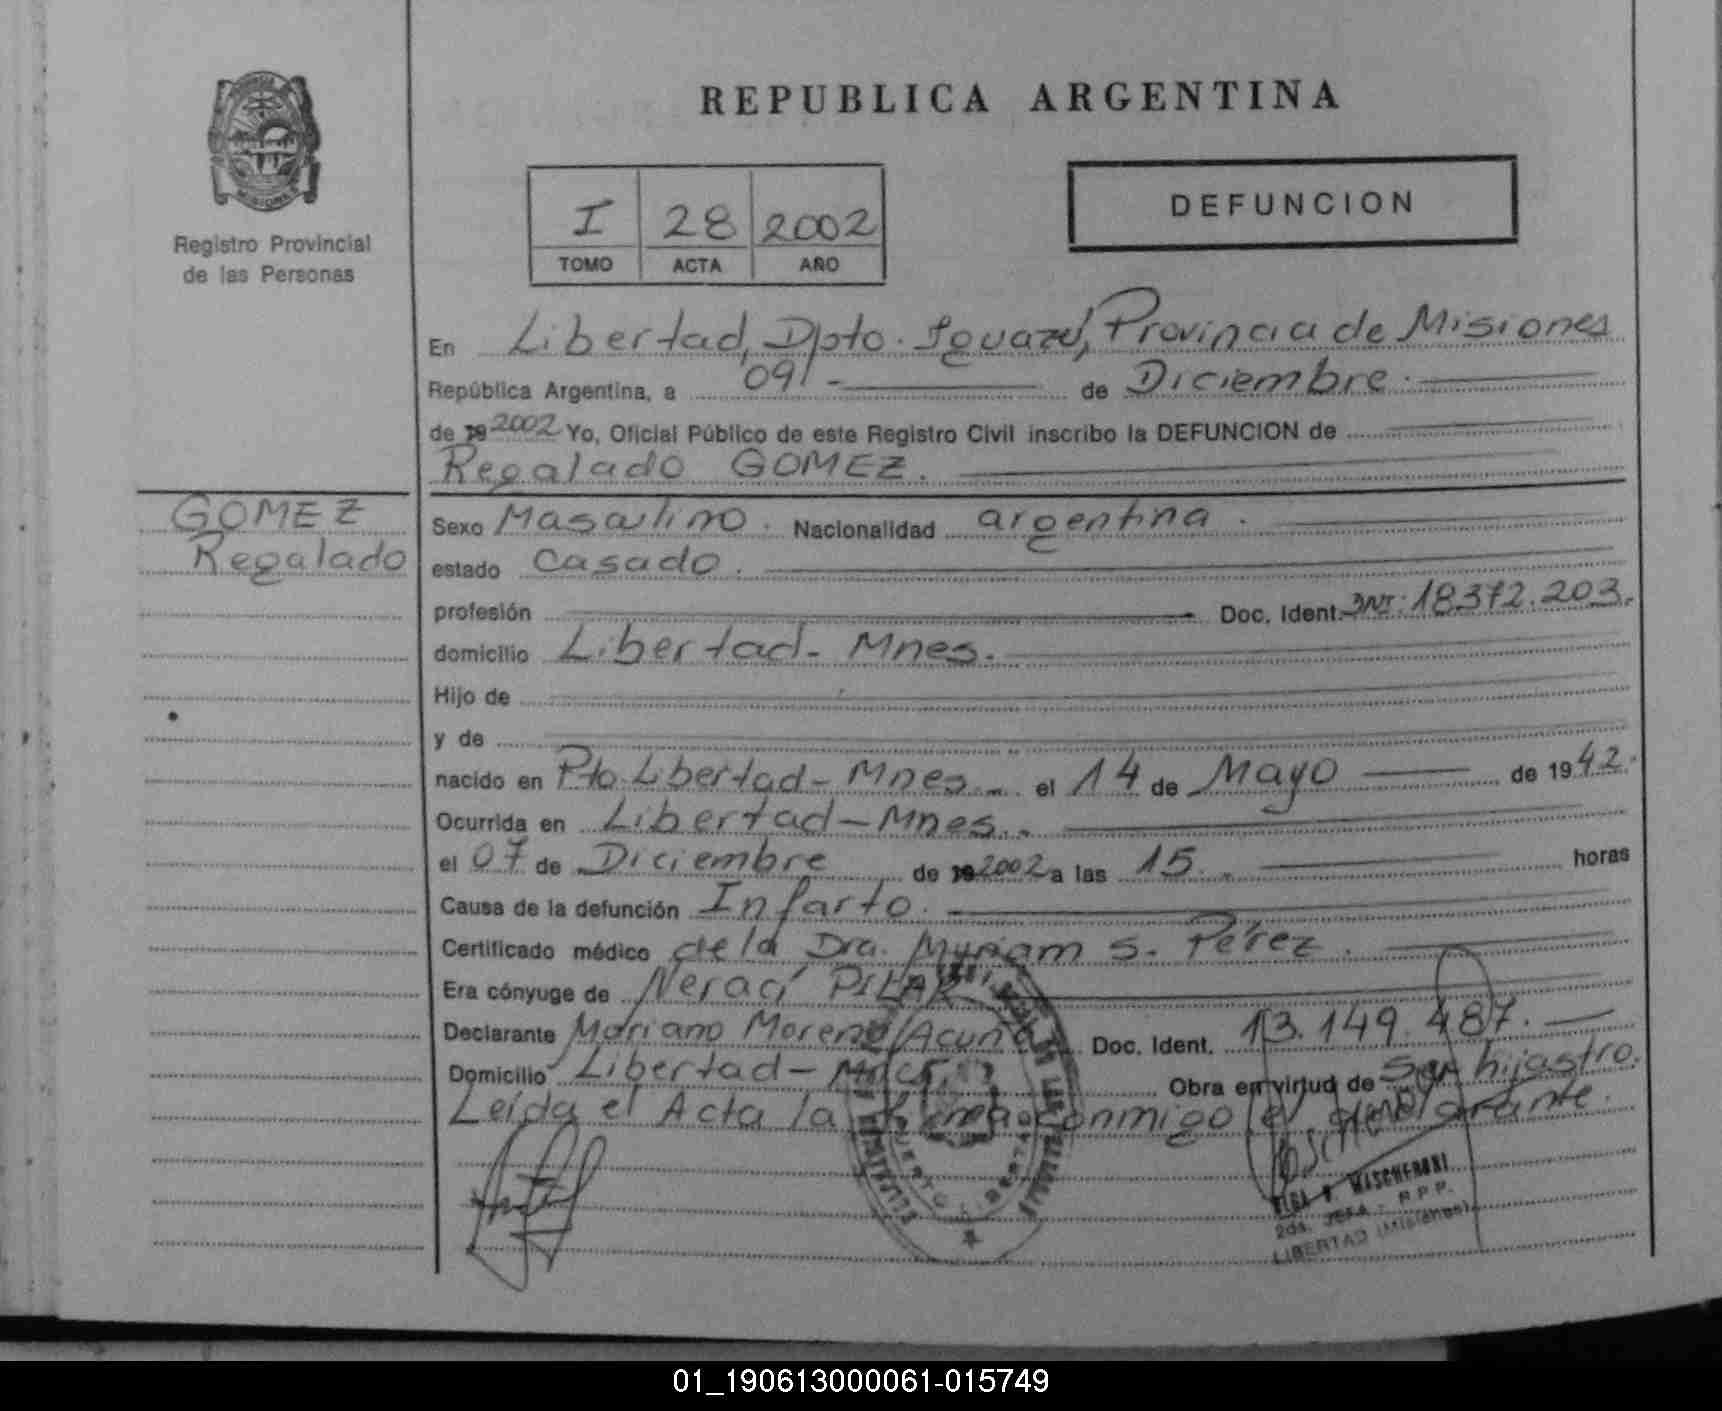 REPUBLICA ARGENTINA
MISIONES
Registro Provincial
de las Personas
I 28 2002
TOMO ACTA AÑO
DEFUNCION
En Libertad, Dpto. Iguazú, Provincia de Misiones
República Argentina, a 09 - de Diciembre.
de 19 2002 Yo, Oficial Público de este Registro Civil inscribo la DEFUNCION de
Regalado GOMEZ.
GOMEZ
Regalado
Sexo Masculino. Nacionalidad argentina.
estado Casado.
profesión Doc. Ident. DNI: 18.372.203.
domicilio Libertad - Mnes.
Hijo de
y de
nacido en Pto. Libertad - Mnes. el 14 de Mayo de 1942.
Ocurrida en Libertad - Mnes.
el 07 de Diciembre de 19 2002 a las 15. horas
Causa de la defunción Infarto.
Certificado médico de la Dra. Myriam S. Pérez.
Era cónyuge de Neraci PILAR
Declarante Mariano Moreno Acuña Doc. Ident. 13.149.487. -
Domicilio Libertad - Mnes. Obra en virtud de Ser hijastro.
Leída el Acta la firma conmigo el declarante.
MASCHERONI
2da. JEFA - R.P.P.
LIBERTAD (Misiones)
01_190613000061-015749